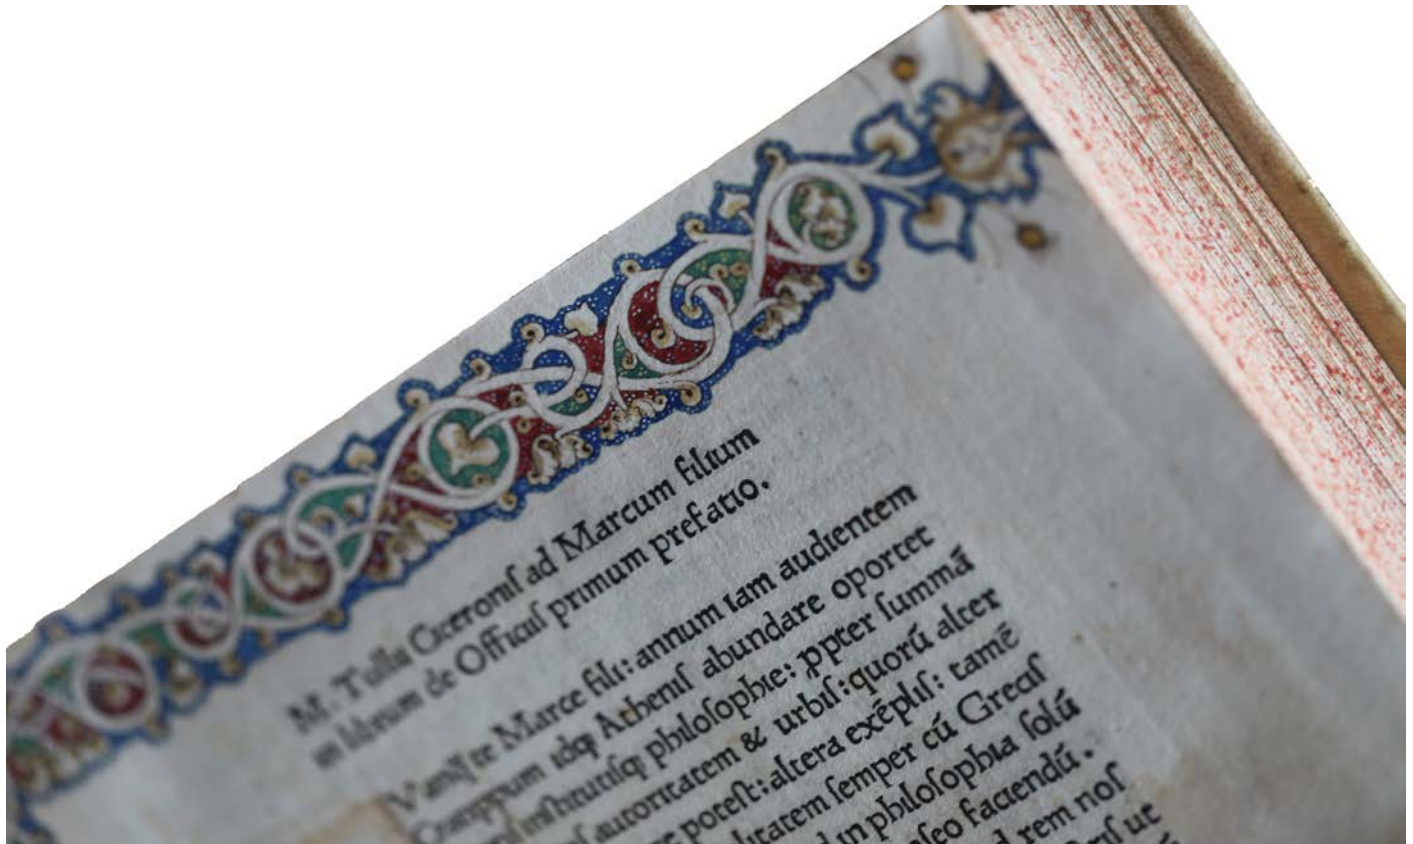 M. Tullii Ciceroniſ ad Marcum filium
in librum de Officiiſ primum prefatio.
te Marce fili: annum iam audientem
Cratippum idqꝫ Atheniſ abundare oportet
inſtitutiſqꝫ philoſophie: ꝓpter ſummā
autoritatem & urbiſ: quorū alter
poteſt: altera exēpliſ: tamē
utilitatem ſemper cū Greciſ
in philoſophia ſolū
faciendū.
rem noſ
ut